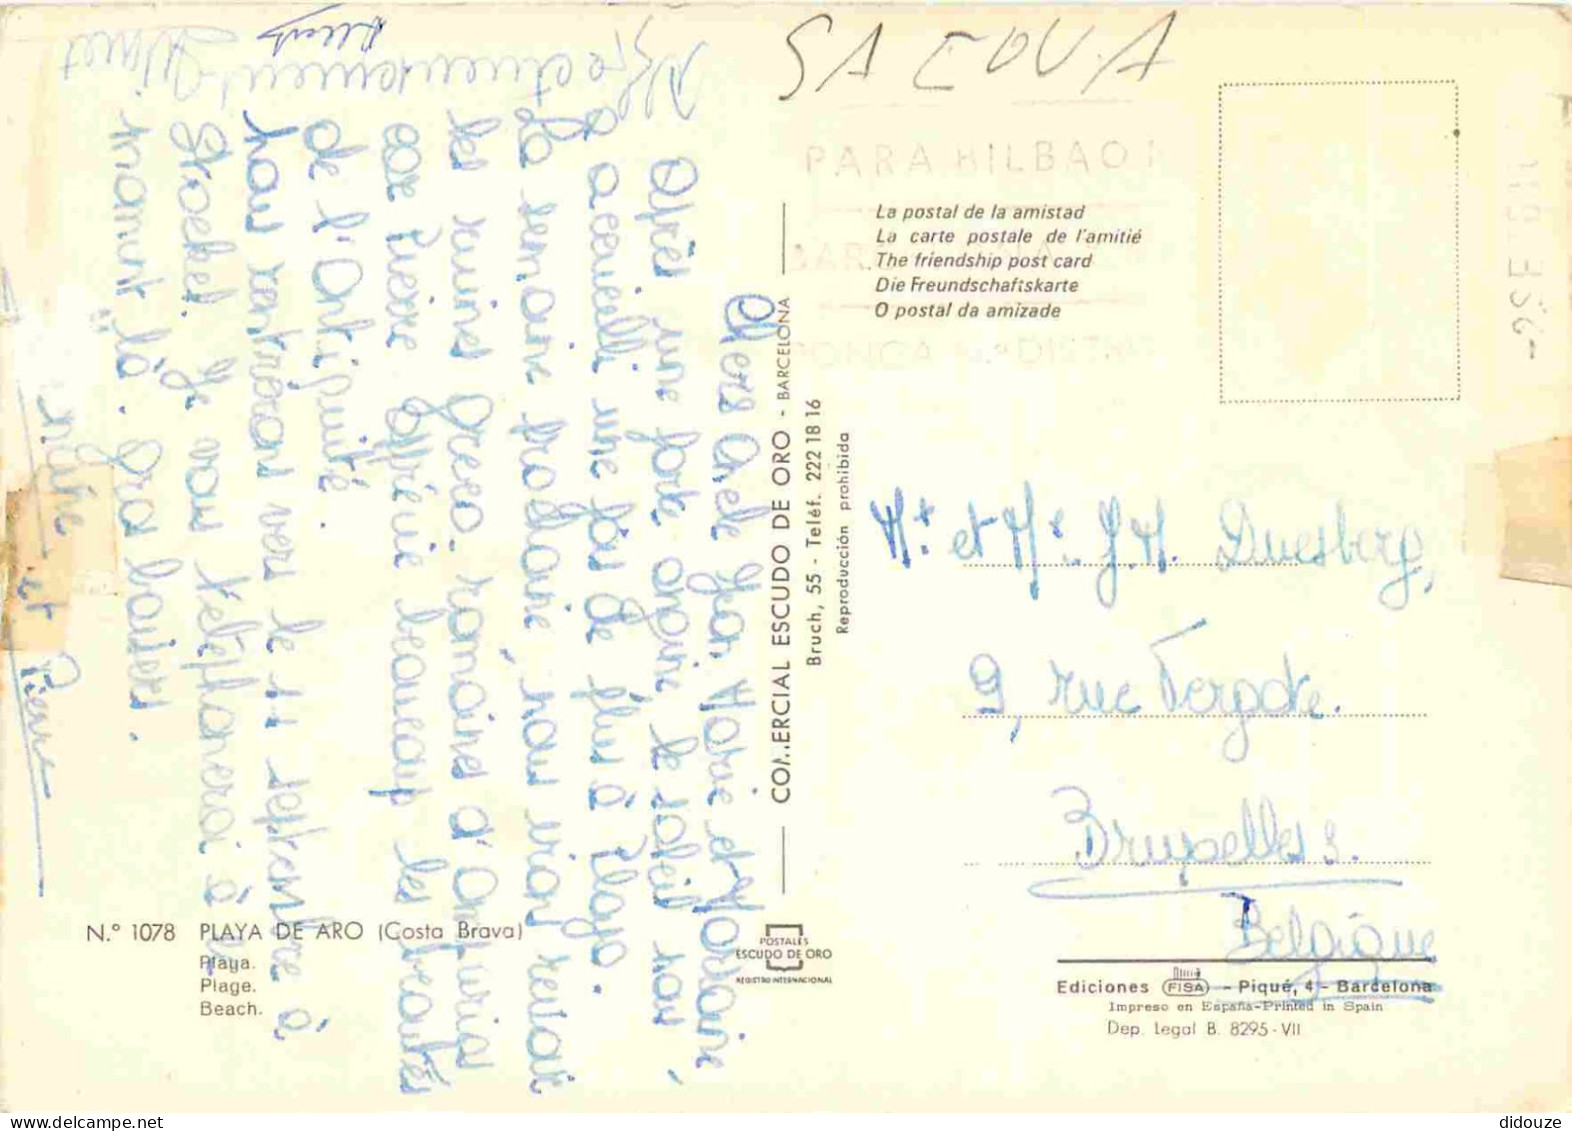 SAEOVA
PARA BILBAO
La postal de la amistad
La carte postale de l'amitié
The friendship post card
Die Freundschaftskarte
O postal da amizade
COMERCIAL ESCUDO DE ORO - BARCELONA
Bruch, 55 - Teléf. 222 18 16
Reproducción prohibida
Chers Jean Marie et
Après une forte orage, le soleil nous
a accueilli une fois de plus à Playa.
La semaine prochaine, nous irons revoir
les ruines greco-romaines d'Ampurias
car Pierre apprécie beaucoup les beautés
de l'Antiquité.
nous rentrerons vers le 11 septembre à
Stockel. Je vous téléphonerai à ce
moment là. gros baisers.
et Pierre
Mr et Me J.M. Duesberg,
9, rue Vergote.
Bruxelles 3.
Belgique
N.º 1078 PLAYA DE ARO (Costa Brava)
Playa.
Plage.
Beach.
POSTALES
ESCUDO DE ORO
REGISTRO INTERNACIONAL
Ediciones FISA - Piqué, 4 - Barcelona
Impreso en España-Printed in Spain
Dep. Legal B. 8295-VII
didouze